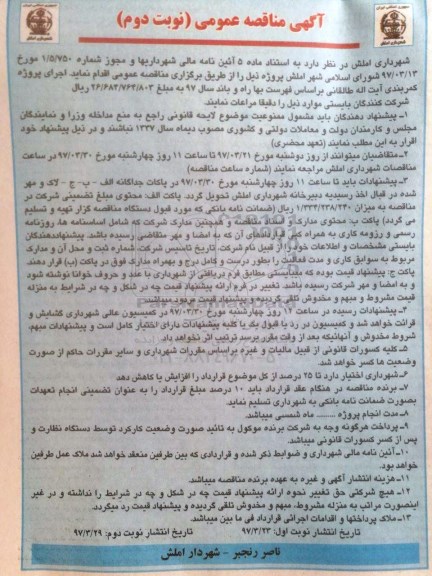 آگهی مناقصه عمومی (نوبت دوم)
شهرداری املش در نظر دارد به استناد ماده ۵ آئین نامه مالی شهرداریها و مجوز شماره ۱/۵/۷۵۰ مورخ
۹۷/۰۳/۱۳ شورای اسلامی شهر املش پروژه ذیل را از طریق برگزاری مناقصه عمومی اقدام نماید. اجرای پروژه
کمربندی آیت اله طالقانی براساس فهرست بها راه و باند سال ۹۷ به مبلغ ۲۶/۶۸۴/۷۶۳/۸۰۳ ریال
شرکت کنندگان بایستی موارد ذیل را دقیقا مراعات نمایند.
۱- پیشنهاد دهندگان باید مشمول ممنوعیت موضوع لایحه قانونی راجع به منع مداخله وزرا و نمایندگان
مجلس و کارمندان دولت و معاملات دولتی و کشوری مصوب دیماه سال ۱۳۳۷ نباشند و در ذیل پیشنهاد خود
اقرار به این مطلب نمایند (تعهد محضری)
۲-متقاضیان میتوانند از روز دوشنبه مورخ ۹۷/۰۳/۲۱ تا ساعت ۱۱ روز چهارشنبه مورخ ۹۷/۰۳/۳۰ در ساعت
مناقصات شهرداری املش مراجعه نمایند (شماره ساعت مناقصه)
۳- پیشنهادات باید تا ساعت ۱۱ روز چهارشنبه مورخ ۹۷/۰۳/۳۰ در پاکات جداگانه الف – ب- ج – لاک و مهر
شده در قبال اخذ رسیدبه دبیرخانه شهرداری املش تحویل گردد. پاکت الف: محتوی مبلغ تضمینی شرکت در
مناقصه به میزان ۱/۳۳۴/۲۳۸/۲۴۰ ریال (ضمانت نامه بانکی که مورد قبول دستگاه مناقصه گزار تهیه و تسلیم
می گردد) پاکت ب: محتوی مدارک و اسناد مناقصه و همچنین مدارک شرکت که شامل اساسنامه ها، روزنامه
رسمی و رزومه کاری به همراه کپی قراردادهای آن که به امضا و مهر متقاضی رسیده باشد. پیشنهاددهندگان
بایستی مشخصات و اطلاعات خود را از قبیل نام شرکت، تاریخ تاسیس شرکت، شماره ثبت و محل آن و مدارک
مربوط به سوابق کاری و مدت فعالیت را بطور درست و کامل درج و بهمراه مدارک فوق در پاکت (ب) قرار دهند.
پاکت ج: پیشنهاد قیمت بوده که میبایستی مطابق فرم دریافتی از شهرداری با عدد و حروف خوانا نوشته شود
و به امضا و مهر شرکت رسیده باشد. تغییر در فرم ارائه پیشنهاد قیمت چه در شکل و چه در شرایط به منزله
قیمت مشروط و مبهم و مخدوش تلقی گردیده و پیشنهاد قیمت مردود میباشد.
۴- پیشنهادات رسیده در ساعت ۱۲ روز چهارشنبه مورخ ۹۷/۰۳/۳۰ در کمیسیون عالی شهرداری گشایش و
قرائت خواهد شد و کمیسیون در رد یا قبول یک یا کلیه پیشنهادات دارای اختیار کامل است و پیشنهادات مبهم،
شروط مخدوش و آنهائیکه بعد از وقت مقرر برسد ترتیب اثر نخواهد داد.
۵- کلیه کسورات قانونی از قبیل مالیات و غیره براساس مقررات شهرداری و سایر مقررات حاکم از صورت
وضعیت ها کسر خواهد شد.
۶-شهرداری اختیار دارد تا ۲۵ درصد از کل موضوع قرارداد را افزایش یا کاهش دهد
۷- برنده مناقصه در هنگام عقد قرارداد باید ۱۰ درصد مبلغ قرارداد را به عنوان تضمینی انجام تعهدات
بصورت ضمانت نامه بانکی به شهرداری تسلیم نماید.
۸-مدت انجام پروژه ........ ماه شمسی میباشد.
۹- پرداخت هرگونه وجه به شرکت برنده موکول به تائید صورت وضعیت کارکرد توسط دستگاه نظارت و
پس از کسر کسورات قانونی میباشد.
۱۰- آئین نامه مالی شهرداری و ضوابط ذکر شده و قراردادی که بین طرفین منعقد خواهد شد ملاک عمل طرفین
خواهد بود.
۱۱-هزینه انتشار آگهی و غیره به عهده برنده مناقصه میباشد.
۱۲- هیچ شرکتی حق تغییر نحوه ارائه پیشنهاد قیمت چه در شکل و چه در شرایط را نداشته و در غیر
اینصورت مراتب به منزله مشروط، مبهم و مخدوش تلقی گردیده و پیشنهاد قیمت رد میگردد.
۱۳-ملاک پرداختها و اقدامات اجرائی قرارداد فی ما بین میباشد.
تاریخ انتشار نوبت اول: ۹۷/۳/۲۳ تاریخ انتشار نوبت دوم: ۹۷/۳/۲۹
ناصر رنجبر – شهردار املش